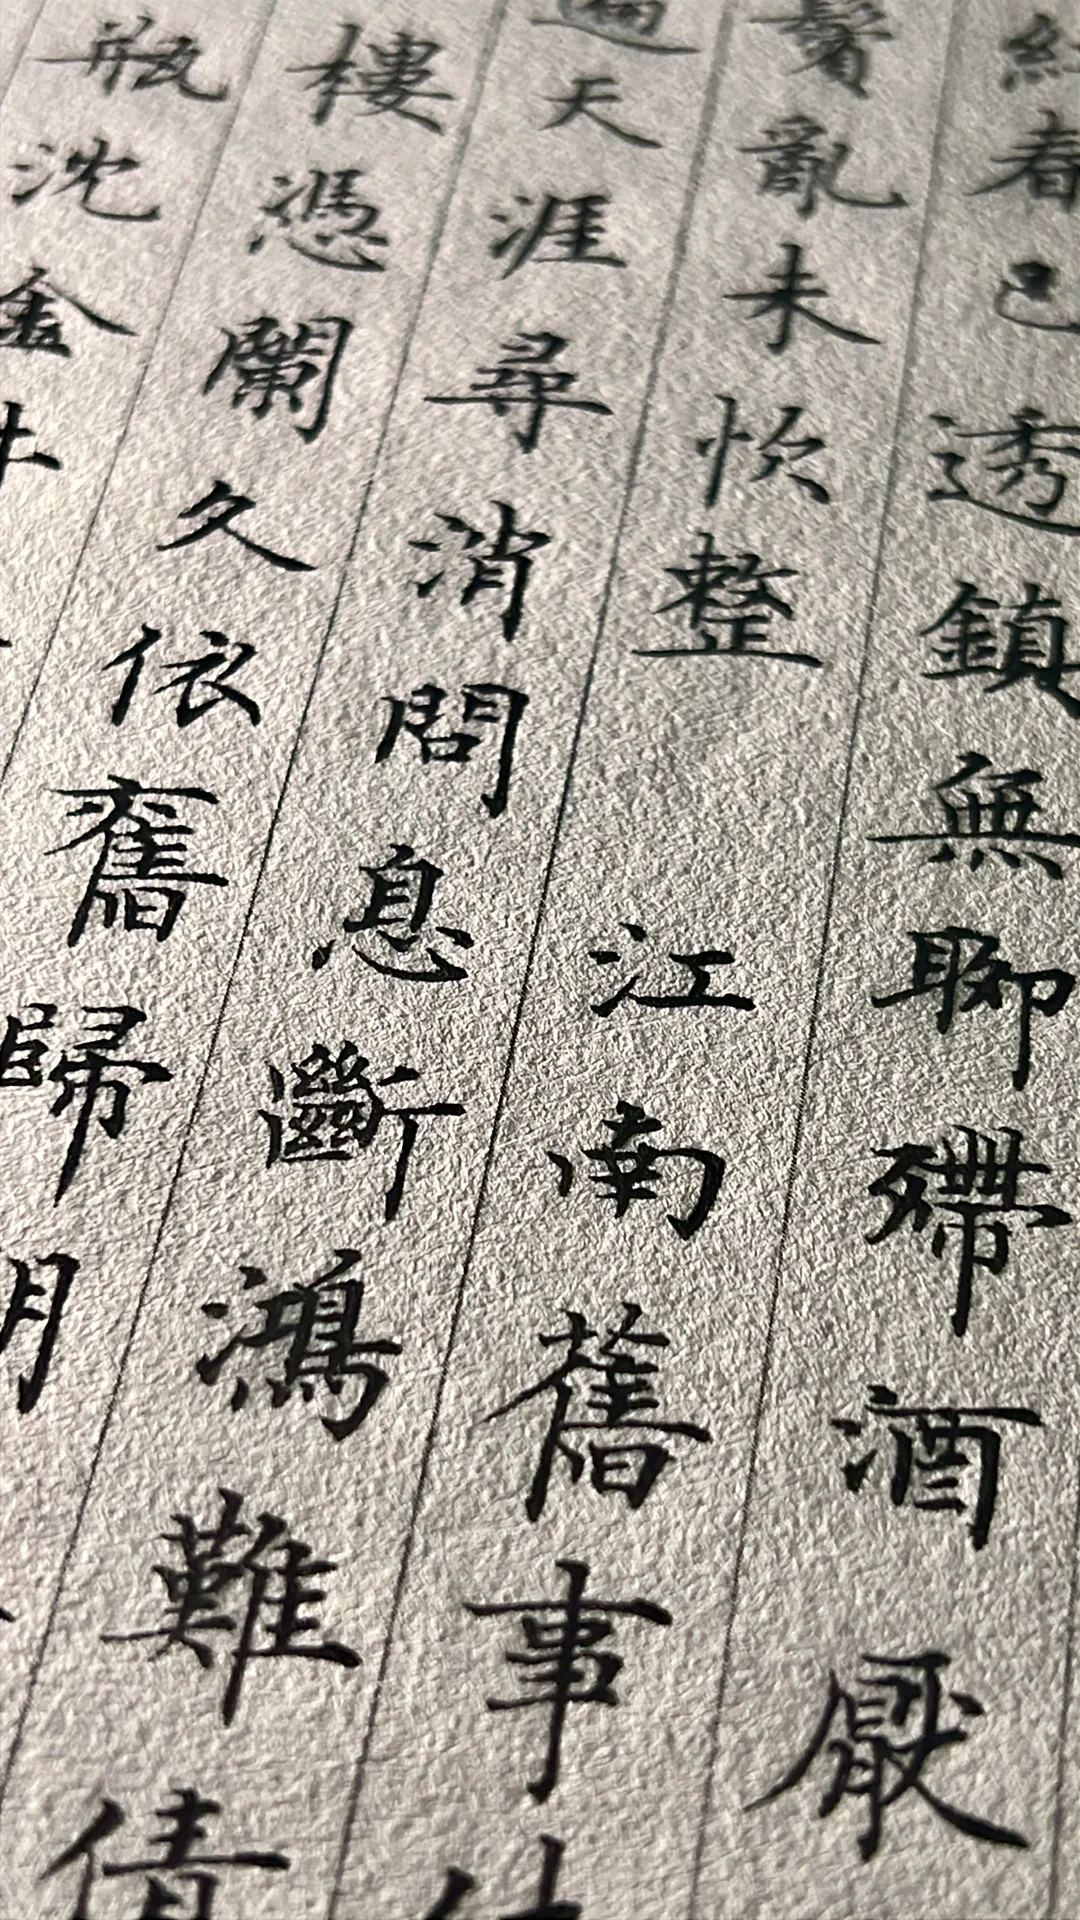 春已透鎮無聊殢酒 厭
鬢亂未忺整 江南舊事
遍天涯尋消問息斷鴻難倩
樓憑闌久依舊歸期
瓶沈金井